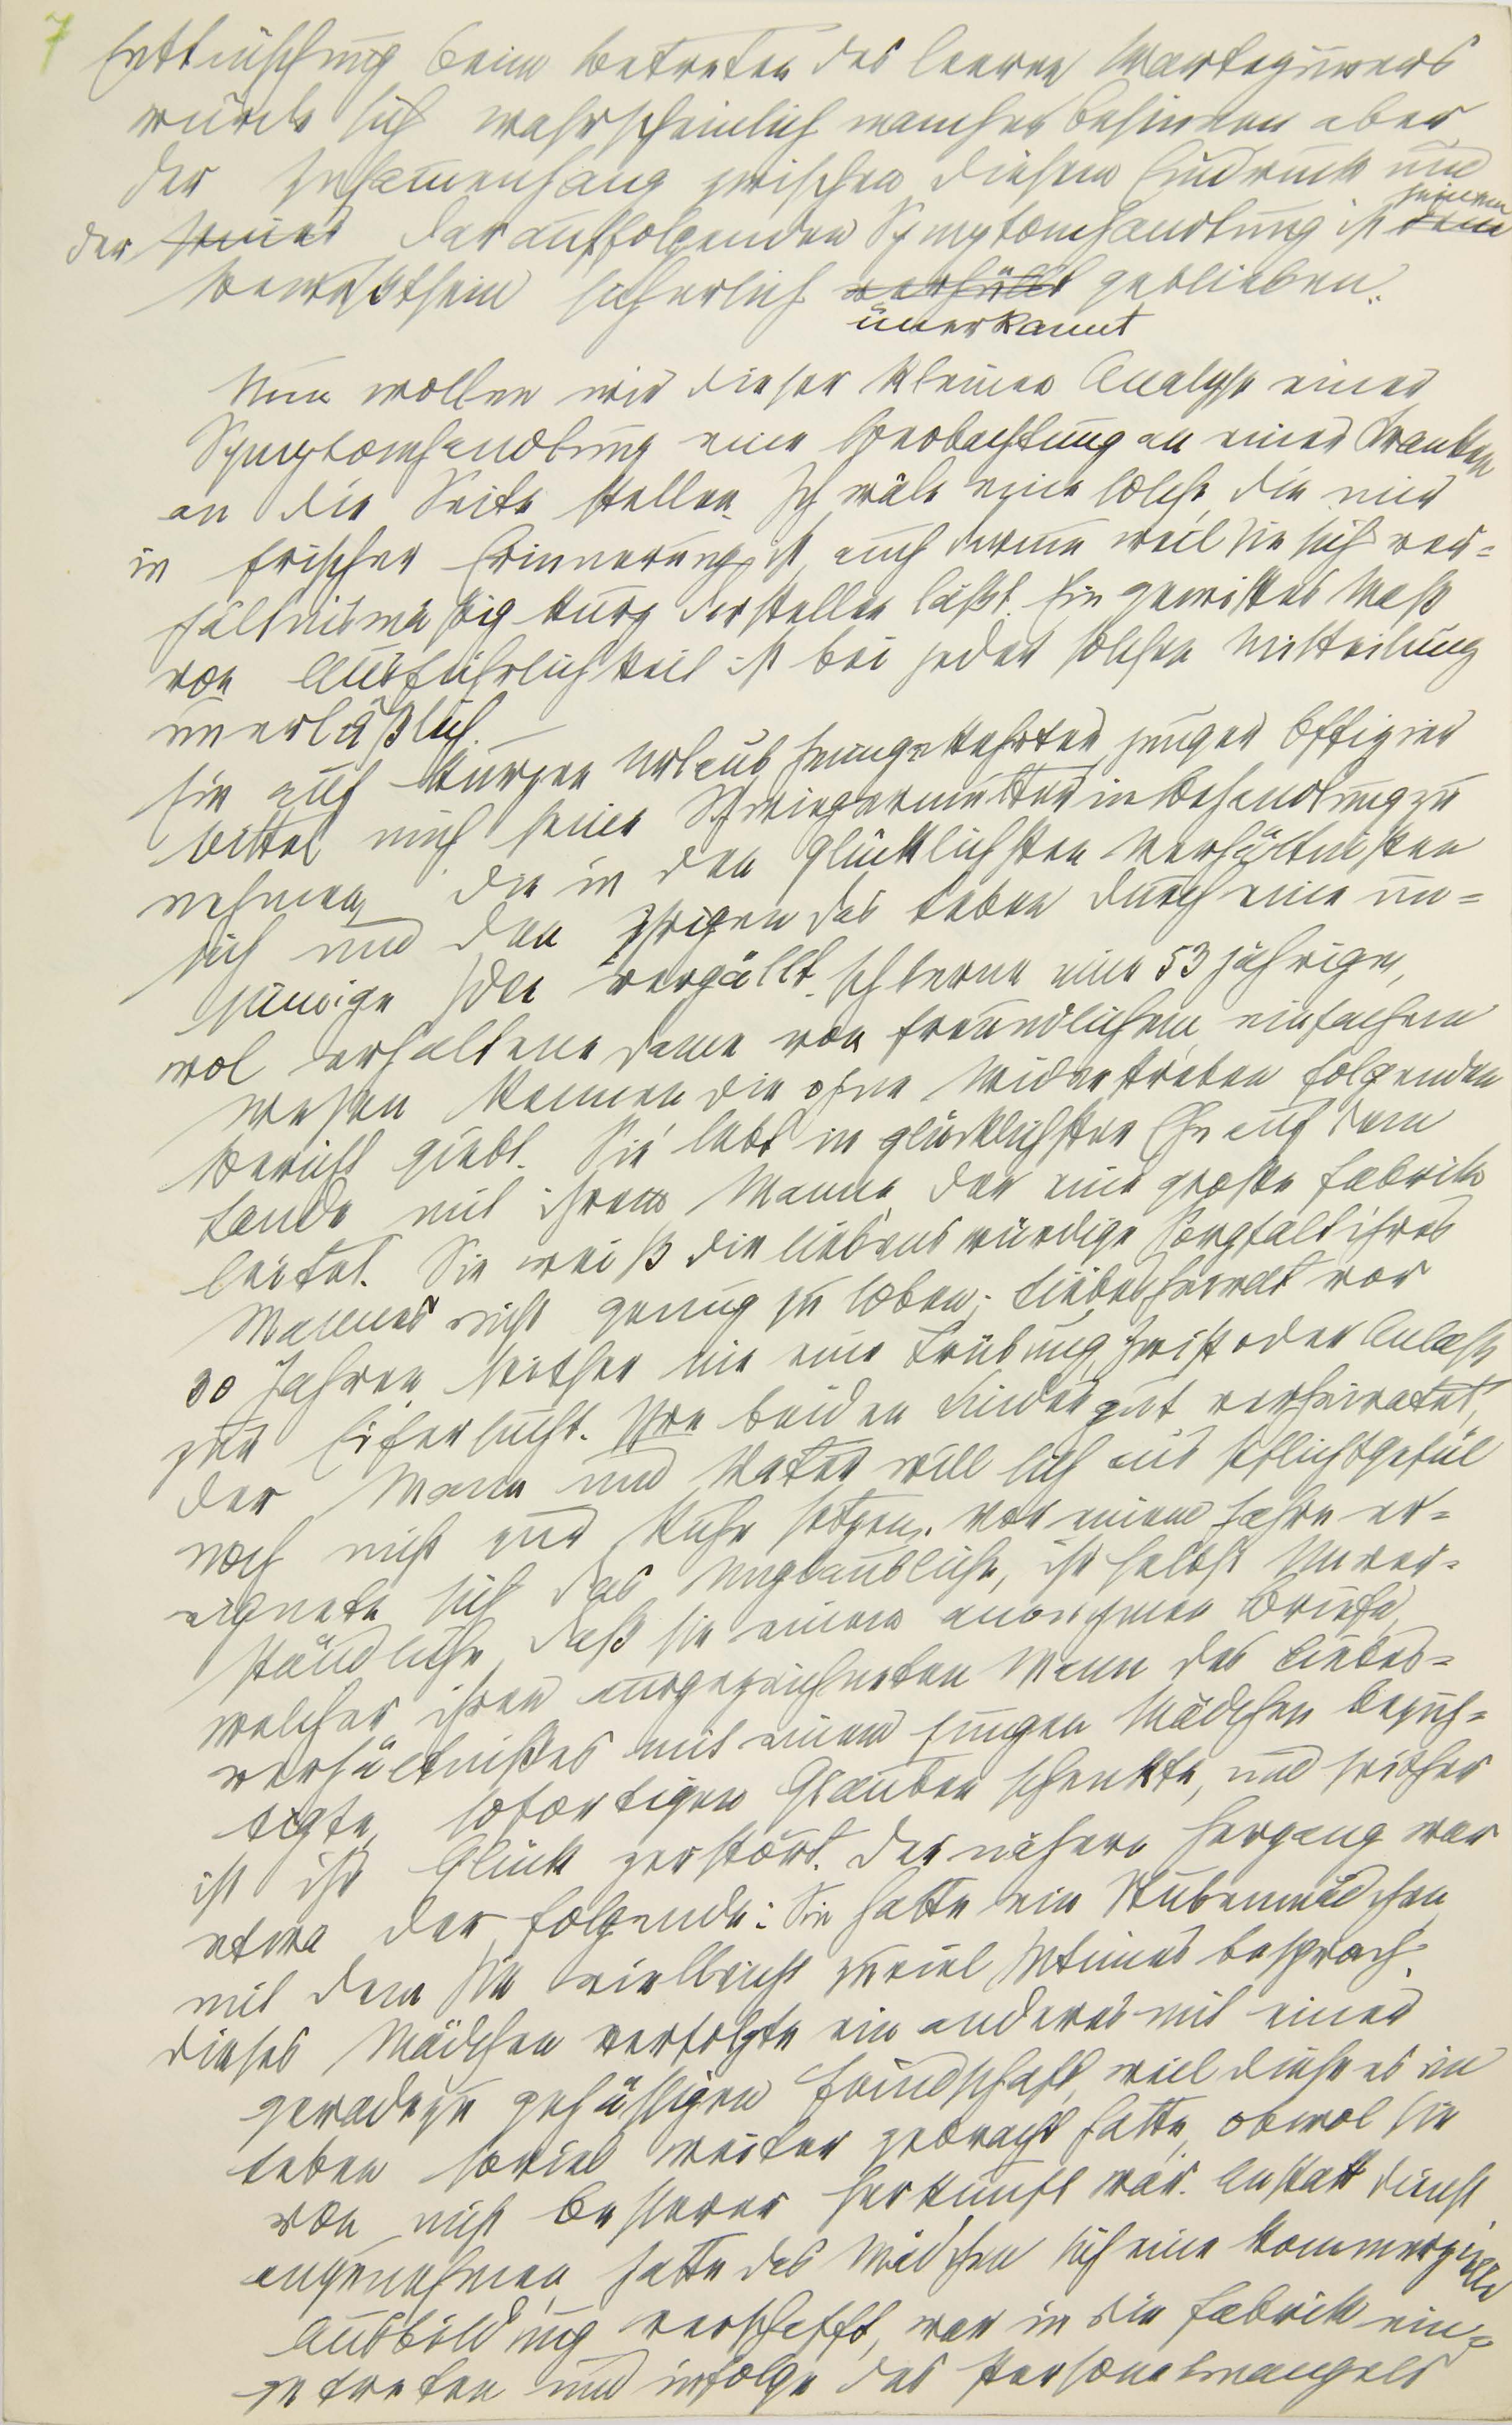 7
Enttäuschung beim Betreten des leeren Wartezimmers
würde sich wahrscheinlich mancher besinnen aber
der Zusammenhang zwischen diesem Eindruck und
der seiner darauffolgenden Symptomhandlung ist dem seinem
Bewußtsein sicherlich verhüllt geblieben.
unerkannt
Nun wollen wir dieser kleinen Analyse einer
Symptomhandlung eine Beobachtung an einer Kranken
an die Seite stellen. Ich wäle eine solche, die mir
in frischer Erinnerung ist, auch darum weil sie sich ver=
hältnismäßig kurz darstellen läßt. Ein gewisses Maß
von Ausführlichkeit ist bei jeder solchen Mitteilung
unerläßlich.
Ein auf kurzen Urlaub heimgekehrter junger Offizier
bittet mich seine Schwiegermutter in Behandlung zu
nehmen, die in den glücklichsten Verhältnissen
sich und den Ihrigen das Leben durch eine un=
sinnige Idee vergällt. Ich lerne eine 53 jährige,
wol erhaltene Dame von freundlichem, einfachem
Wesen kennen die ohne Widerstreben folgenden
Bericht giebt. Sie lebt in glücklichster Ehe auf dem
Lande mit ihrem Manne, der eine große Fabrik
leitet. Sie weiß die liebenswürdige Sorgfalt ihres
Mannes nicht genug zu loben; Liebesheirat vor
30 Jahren, seither nie eine Trübung, Zwist oder Anlaß
zur Eifersucht. Ihre beiden Kinder gut verheiratet,
der Mann und Vater will sich aus Pflichtgefül
noch nicht zur Ruhe setzen. Vor einem Jahre er=
eignete sich das Unglaubliche, ihr selbst Unver=
ständliche, daß sie einem anonymen Briefe,
welcher ihren ausgezeichneten Mann des Liebes=
verhältnißes mit einem jungen Mädchen bezich=
tigte, sofortigen Glauben schenkte, und seither
ist ihr Glück zerstört. Der nähere Hergang war
etwa der folgende: Sie hatte ein Stubenmädchen,
mit dem sie vielleicht zuviel Intimes besprach.
Dieses Mädchen verfolgte ein anderes mit einer
geradezu gehässigen Feindschaft, weil diese es im
Leben soviel weiter gebracht hatte, obwol sie
von nicht besserer Herkunft war. Anstatt Dienst
anzunehmen, hatte das Mädchen sich eine kommerzielle
Ausbildung verschafft, war in die Fabrik ein=
getreten und infolge des Personalmangels